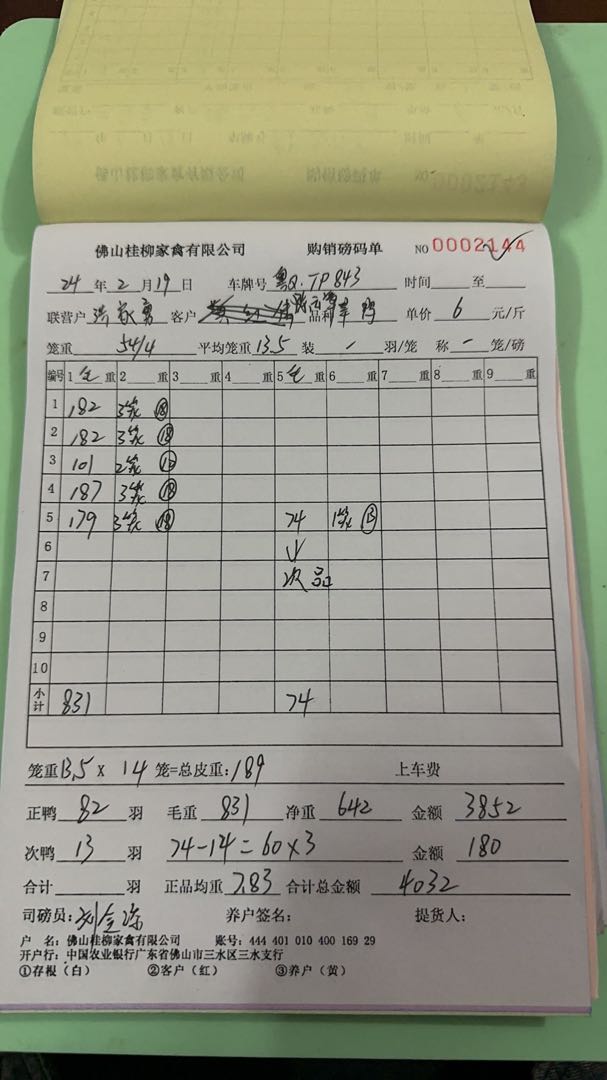 佛山桂柳家禽有限公司 购销磅码单 NO 0002144
24 年 2 月 19 日 车牌号 粤Q·TP843 时间 至
联营户 客户 品种 鸭 单价 6 元/斤
笼重 54/4 平均笼重 13.5 装 - 羽/笼 称 - 笼/磅
编号 1 毛 重 2 重 3 重 4 重 5 毛 重 6 重 7 重 8 重 9 重
1 182 3笼 ⑱
2 182 3笼 ⑱
3 101 2笼
4 187 3笼 ⑱
5 179 3笼 ⑱ 74 1笼 ⑬
6
7 次品
8
9
10
小计 831 74
笼重 13.5 X 14 笼=总皮重: 189 上车费
正鸭 82 羽 毛重 831 净重 642 金额 3852
次鸭 13 羽 74-14=60×3 金额 180
合计 羽 正品均重 7.83 合计总金额 4032
司磅员: 养户签名: 提货人:
户 名: 佛山桂柳家禽有限公司 账号: 444 401 010 400 169 29
开户行: 中国农业银行广东省佛山市三水区三水支行
①存根(白) ②客户(红) ③养户(黄)